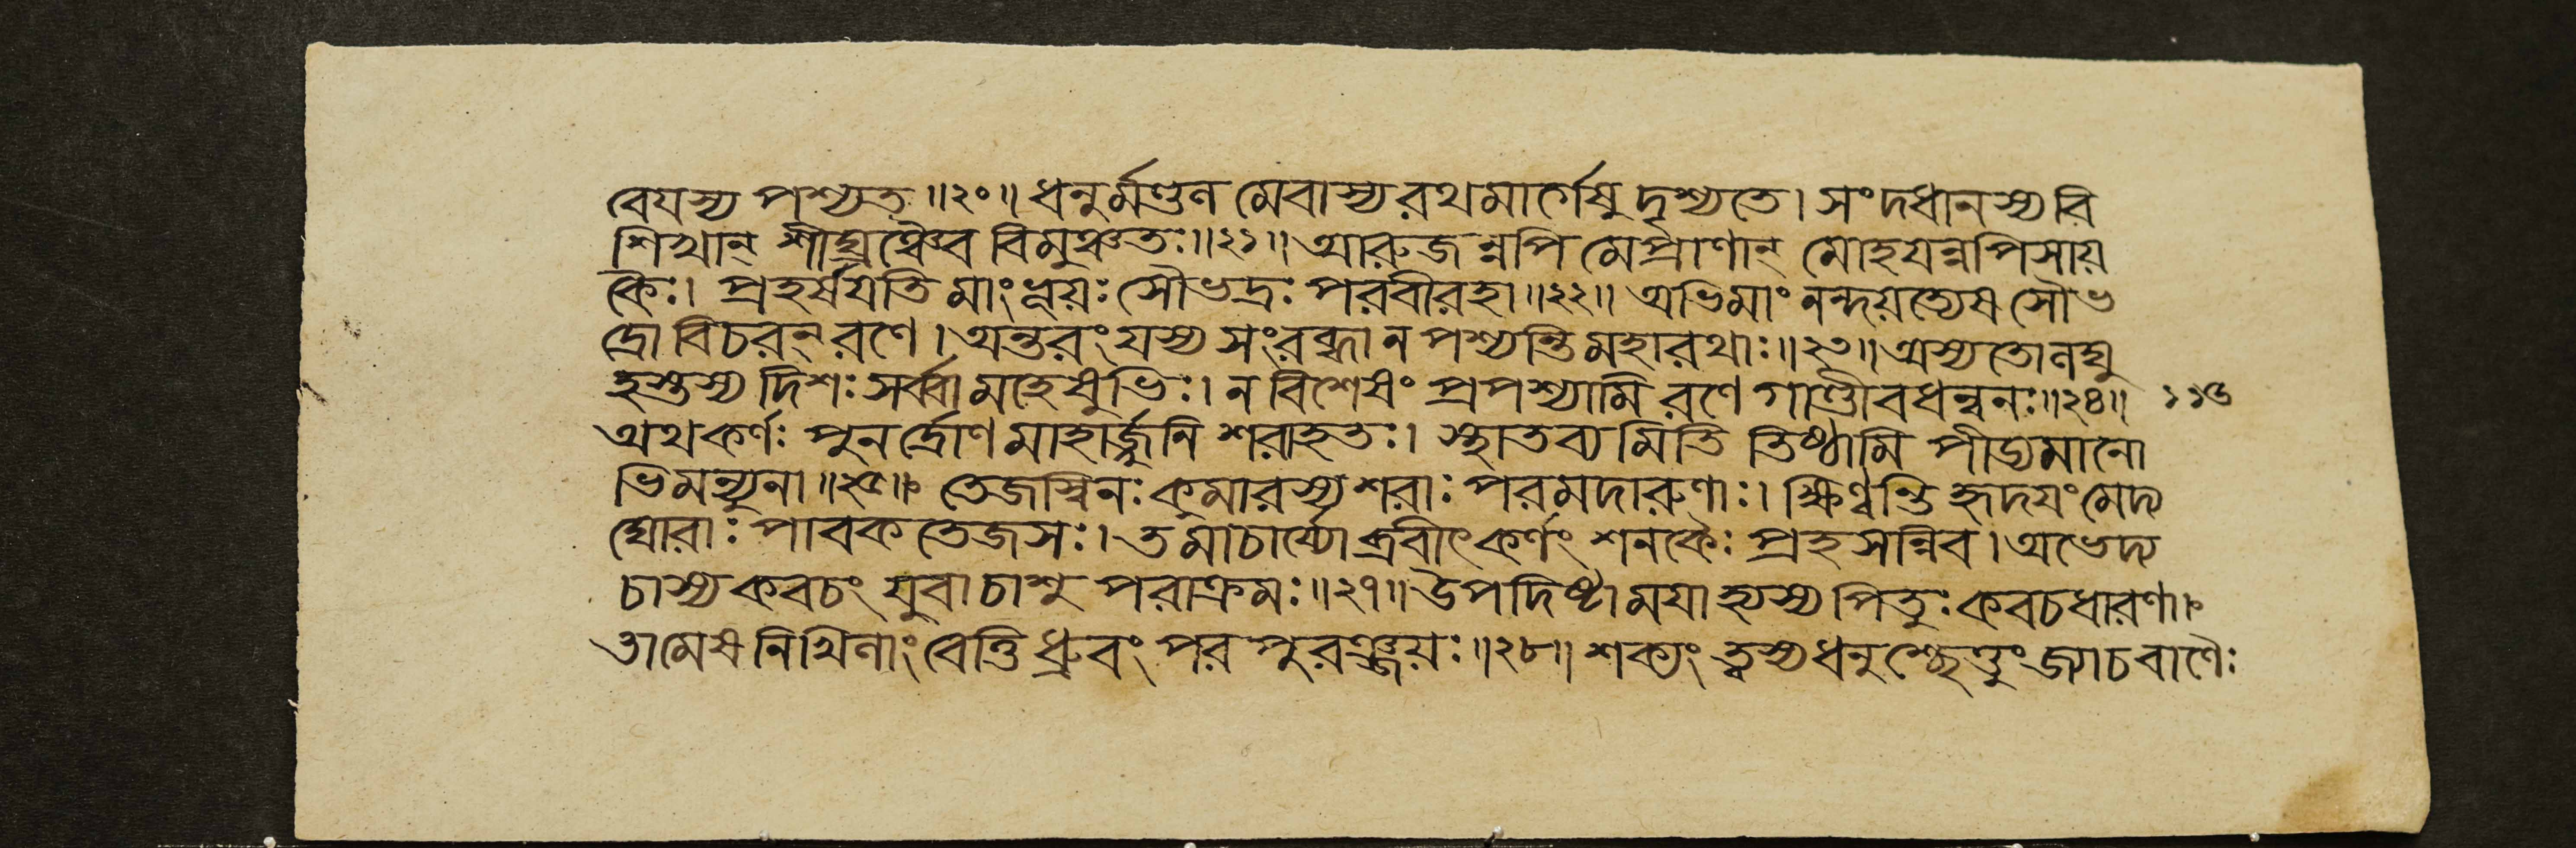 বেযস্য পশ্যত ॥২০॥ ধনুর্মণ্ডল মেবাস্য রথমার্গেষু দৃশ্যতে। সংদধানস্য বি
শিখান্ শীঘ্রঞ্চৈব বিমুঞ্চতঃ॥২১॥ আরুজন্নপি মে প্রাণান্ মোহযন্নপি সায়
কৈঃ। প্রহর্ষযতি মাং ভূয়ঃ সৌভদ্রঃ পরবীরহা॥২২॥ অভিমাং নন্দয়ত্যেষ সৌভ
দ্রো বিচরন্ রণে। অন্তরং যস্য সংরব্ধা ন পশ্যন্তি মহারথাঃ॥২৩॥ অস্যতো লঘু
হস্তস্য দিশঃ সর্ব্বা মহেষুভিঃ। ন বিশেষং প্রপশ্যামি রণে গাণ্ডীবধন্বনঃ॥২৪॥ ১১৬
অথ কর্ণঃ পুনর্দ্রোণ মাহার্জ্জুনি শরাহতঃ। স্থাতব্য মিতি তিষ্ঠামি পীড্যমানো
ভিমন্যুনা॥২৫॥ তেজস্বিনঃ কুমারস্য শরাঃ পরমদারুণাঃ। ক্ষিণ্বন্তি হৃদযং মেদ্য
ঘোরাঃ পাবক তেজসঃ। তমাচার্য্যো ব্রবীৎ কর্ণং শনকৈঃ প্রহসন্নিব। অভেদ্য
চাস্য কবচং যুবা চাশু পরাক্রমঃ॥২৭॥ উপদিষ্টা ময়া হ্যস্য পিতুঃ কবচধারণা
তামেষ নিখিলাং বেত্তি ধ্রুবং পর পুরঞ্জয়ঃ॥২৮॥ শক্যং ত্বস্য ধনুশ্ছেত্তুং জ্যা চ বাণৈঃ